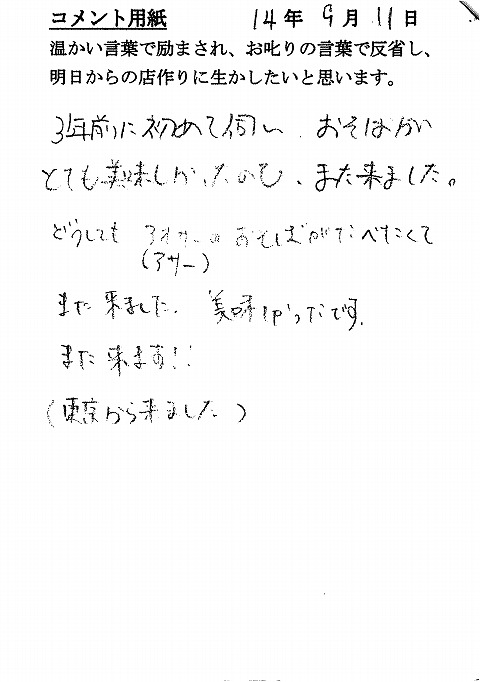 コメント用紙 14年 9月 11日
温かい言葉で励まされ、お叱りの言葉で反省し、
明日からの店作りに生かしたいと思います。
3年前に初めて伺い、おそばがい
とても美味しかったので、また来ました。
どうしても アオサーのおそばがたべたくて
(アサー)
また来ました。美味かったです。
また来ます!!
(東京から来ました)